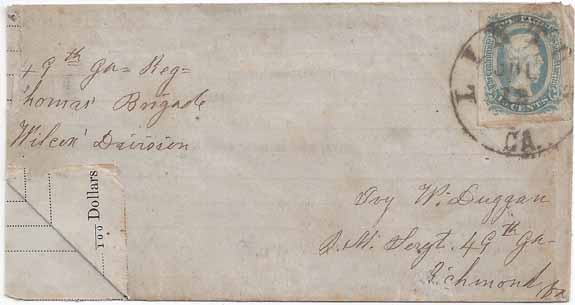 49th Ga= Reg=
Thomas' Brigade
Wilcox' Division
100 Dollars
LINTON
JUL
GA.
TEN CENTS
Ivy W. Duggan
O. M. Sergt. 49th Ga-
Richmond, Va